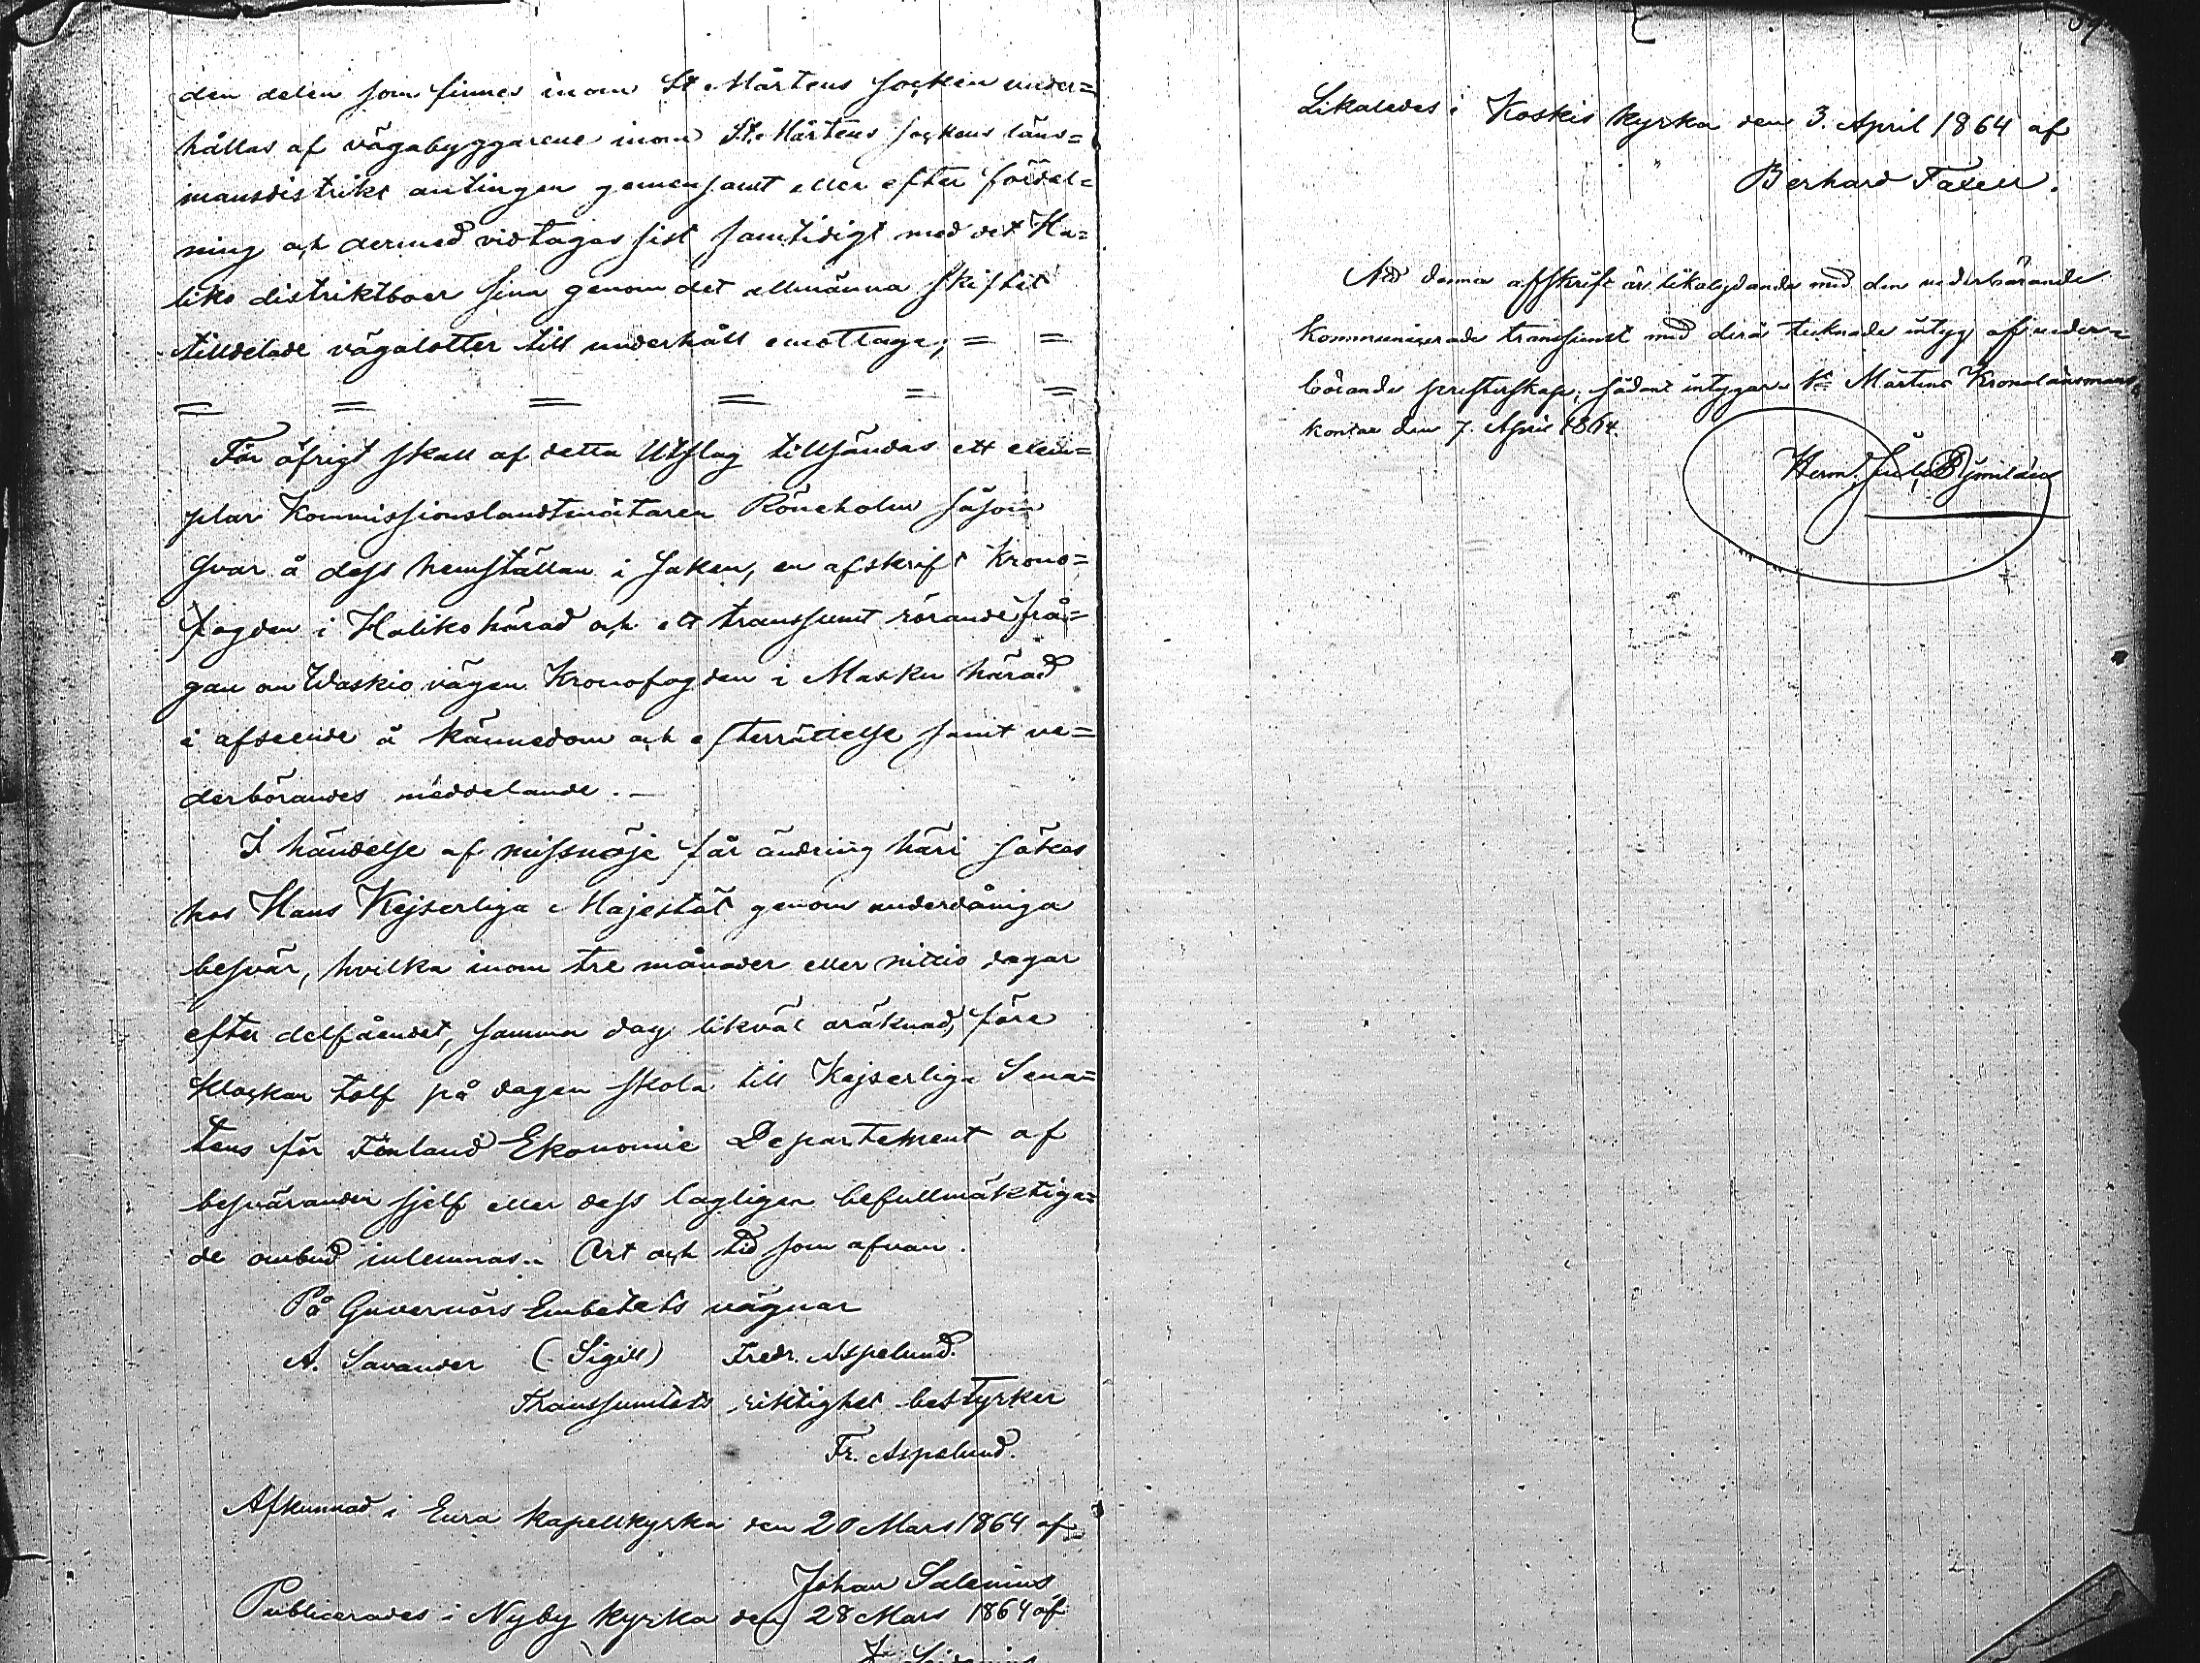 den delen som finnes inom St Mårtens socken under=
hållas af vägabyggarene inom St. Mårtens sockens läns=
mansdistrikt antingen gemensamt eller efter fördel=
ning och dermed vidtagas sist samtidigt med det Ha=
liko distriktboer sina genom det allmänna skiftet
tilldelade vägalotter till underhåll emottaga; = =
= = = = = =
För öfrigt skall af detta Utslag tillsändas ett exem=
plar Kommissionslandtmätaren Röneholm såsom
svar å dess hemställan i saken, en afskrift Krono=
fogden i Haliko härad och ett transsumt rörande frå=
gan om Waskio vägen Kronofogden i Masku härad
i afseende å kännedom och efterrättelse samt ve=
derbörandes meddelande. —
I händelse af missnöje får ändring häri sökas
hos Hans Kejserliga Majestät genom underdåniga
besvär, hvilka inom tre månader eller nittio dagar
efter delfåendet, samma dag likväl oräknad, före
klockan tolf på dagen skola till Kejserliga Sena=
tens för Finland Ekonomie Departement af
besväranden sjelf eller dess lagligen befullmäktiga=
de ombud inlemnas.. Ort och tid som ofvan.
På Guvernörs Embetets vägnar
A. Savander (Sigill) Fredr. Aspelund.
Transsumtets riktighet bestyrker
Fr. Aspelund.
Afkunnad i Eura kapellkyrka den 20 Mars 1864 af
Johan Salenius
Publicerades i Nyby kyrka den 28 Mars 1864 af
Likaledes i Koskis kyrka den 3. April 1864 af
Berhard Taxell.
Att denna afskrift är likalydande med den vederbörande
kommunicerade transsumt med derå tecknade intyg af veder=
börande presterskap, sådant intygar. St Mårtens Kronolänsmans
kontor den 7. April 1864.
Herm. Jul.